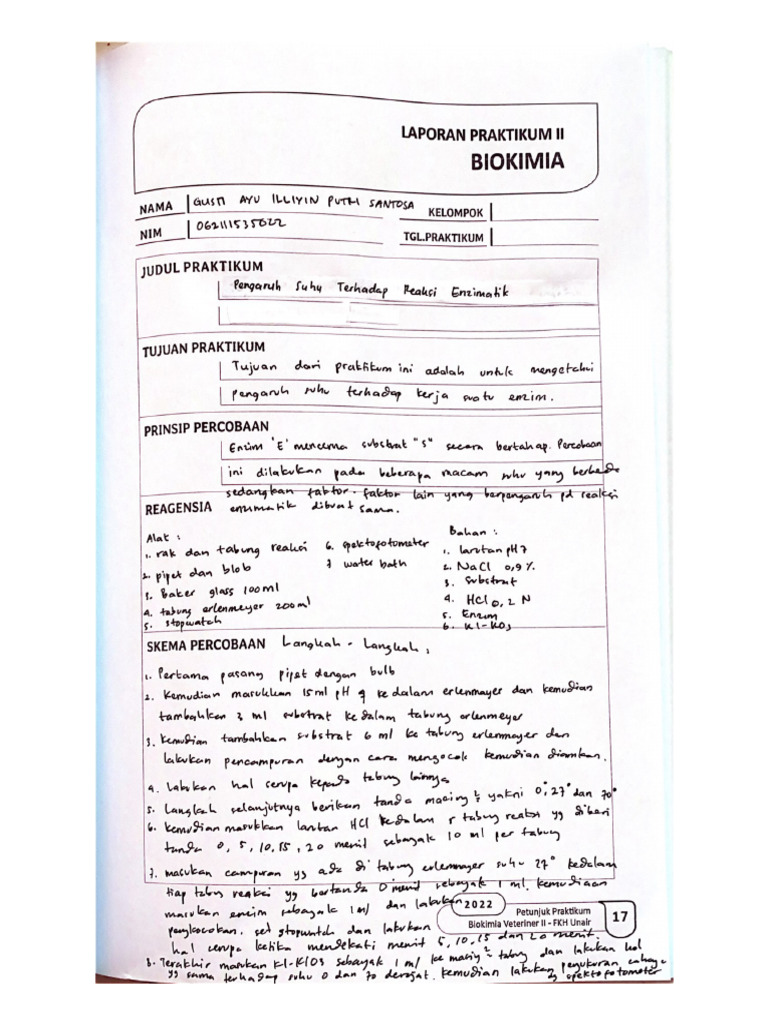 LAPORAN PRAKTIKUM II
BIOKIMIA
NAMA GUSTI AYU ILLIYIN PUTRI SANTOSA
KELOMPOK
NIM 062111535022
TGL.PRAKTIKUM
JUDUL PRAKTIKUM
Pengaruh Suhu Terhadap Reaksi Enzimatik
TUJUAN PRAKTIKUM
Tujuan dari praktikum ini adalah untuk mengetahui
pengaruh suhu terhadap kerja suatu enzim.
PRINSIP PERCOBAAN
Enzim "E" mencerna substrat "S" secara bertahap. Percobaan
ini dilakukan pada beberapa macam suhu yang berbeda
sedangkan faktor-faktor lain yang berpengaruh pd reaksi
REAGENSIA enzimatik dibuat sama.
Alat :
1. rak dan tabung reaksi
2. pipet dan blob
3. Baker glass 100ml
4. tabung erlenmeyer 200ml
5. stopwatch
6. spektofotometer
7 water bath
Bahan :
1. larutan pH 7
2. NaCl 0,9%
3. Substrat
4. HCl 0,2 N
5. Enzim
6. KI-KO3
SKEMA PERCOBAAN Langkah - Langkah :
1. Pertama pasang pipet dengan bulb
2. Kemudian masukkan 15ml pH 9 kedalam erlenmayer dan kemudian
tambahkan 3 ml substrat kedalam tabung erlenmeyer
3. Kemudian tambahkan substrat 6 ml ke tabung erlenmayer dan
lakukan pencampuran dengan cara mengocok kemudian diamkan.
4. Lakukan hal serupa kepada tabung lainnya
5. Langkah selanjutnya berikan tanda masing² yakni 0°, 27° dan 70°
6. Kemudian masukkan larutan HCl kedalam 5 tabung reaksi yg diberi
tanda 0, 5, 10, 15, 20 menit sebanyak 10 ml per tabung
7. masukan campuran yg ada di tabung erlenmayer suhu 27° kedalam
tiap tabung reaksi yg bertanda 0 menit sebanyak 1 ml. kemudiaan
masukan enzim sebanyak 1 ml dan lakukan
pengkocokan. set stopwatch dan lakukan
hal serupa ketika mendekati menit 5, 10, 15 dan 20 menit.
8. Terakhir masukan KI-KIO3 sebanyak 1 ml ke masing² tabung dan lakukan hal
yg sama terhadap suhu 0 dan 70 derajat. Kemudian lakukan pengukuran cahaya
spektofotometer
2022
Petunjuk Praktikum
Biokimia Veteriner II - FKH Unair
17